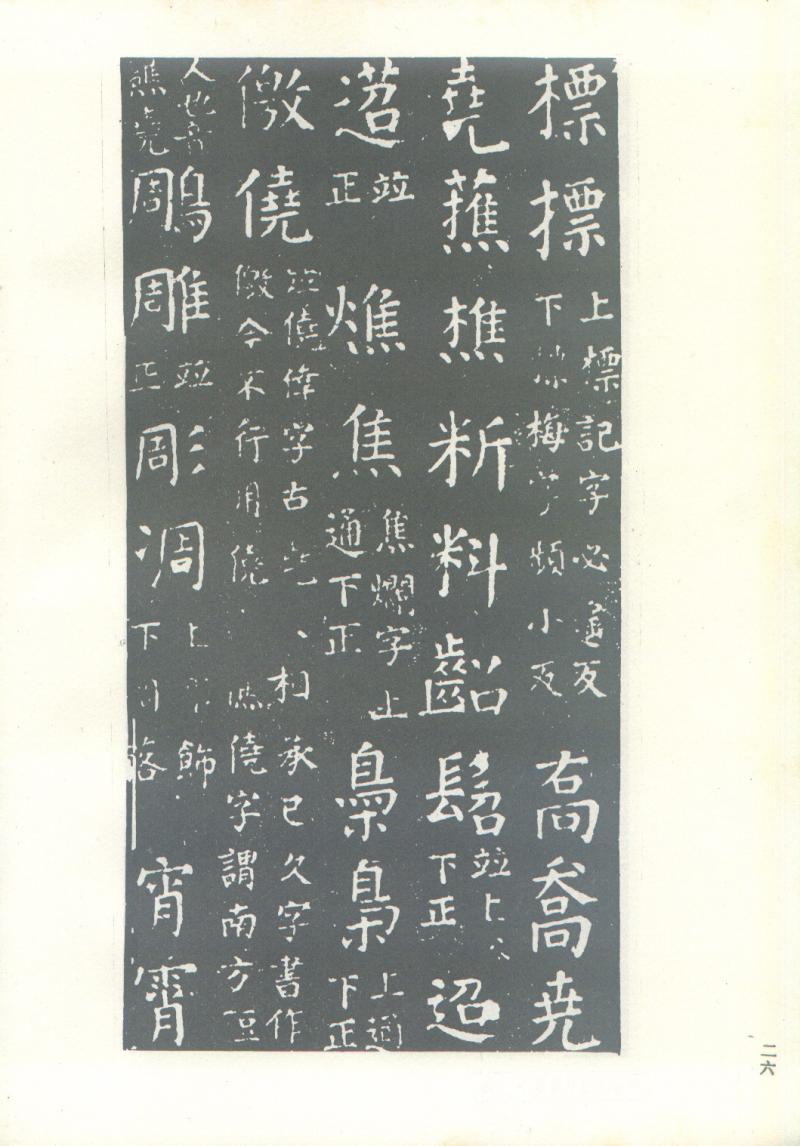 標摽上標記字必遙反下摽梅字頻小反喬喬尭
堯蕉樵䉼料齠髫並上下正迢
迢並正燋焦焦爛字上通下正梟梟上通下正
儌僥並僥倖字古堯相承已久字書作儌今不行用僥僥字謂南方短
人也音堯鵰雕並正彫凋上飾下落宵霄